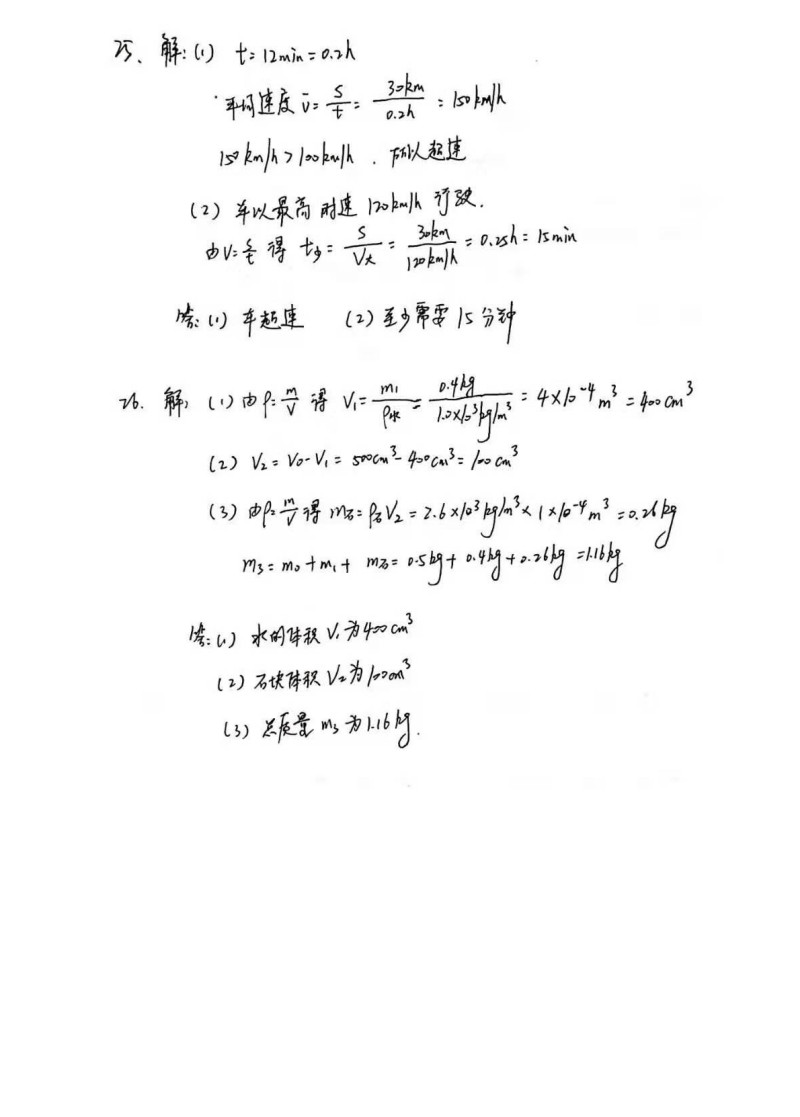 25、解:(1) t=12min=0.2h
平均速度 v̄=S/t=30km/0.2h=150km/h
150km/h>100km/h,所以超速
(2)车以最高时速120km/h行驶.
由V=S/t得 t少=S/V大=30km/120km/h=0.25h=15min
答:(1)车超速 (2)至少需要15分钟
26.解,(1)由ρ=m/V得 V₁=m₁/ρ水=0.4kg/1.0×10³kg/m³=4×10⁻⁴m³=400cm³
(2) V₂=V0-V₁=500cm³-400cm³=100cm³
(3)由ρ=m/V得 m石=ρ石V₂=2.6×10³kg/m³×1×10⁻⁴m³=0.26kg
m₃=m₀+m₁+m石=0.5kg+0.4kg+0.26kg=1.16kg
答:(1)水的体积V₁为400cm³
(2)石块体积V₂为100cm³
(3)总质量m₃为1.16kg.